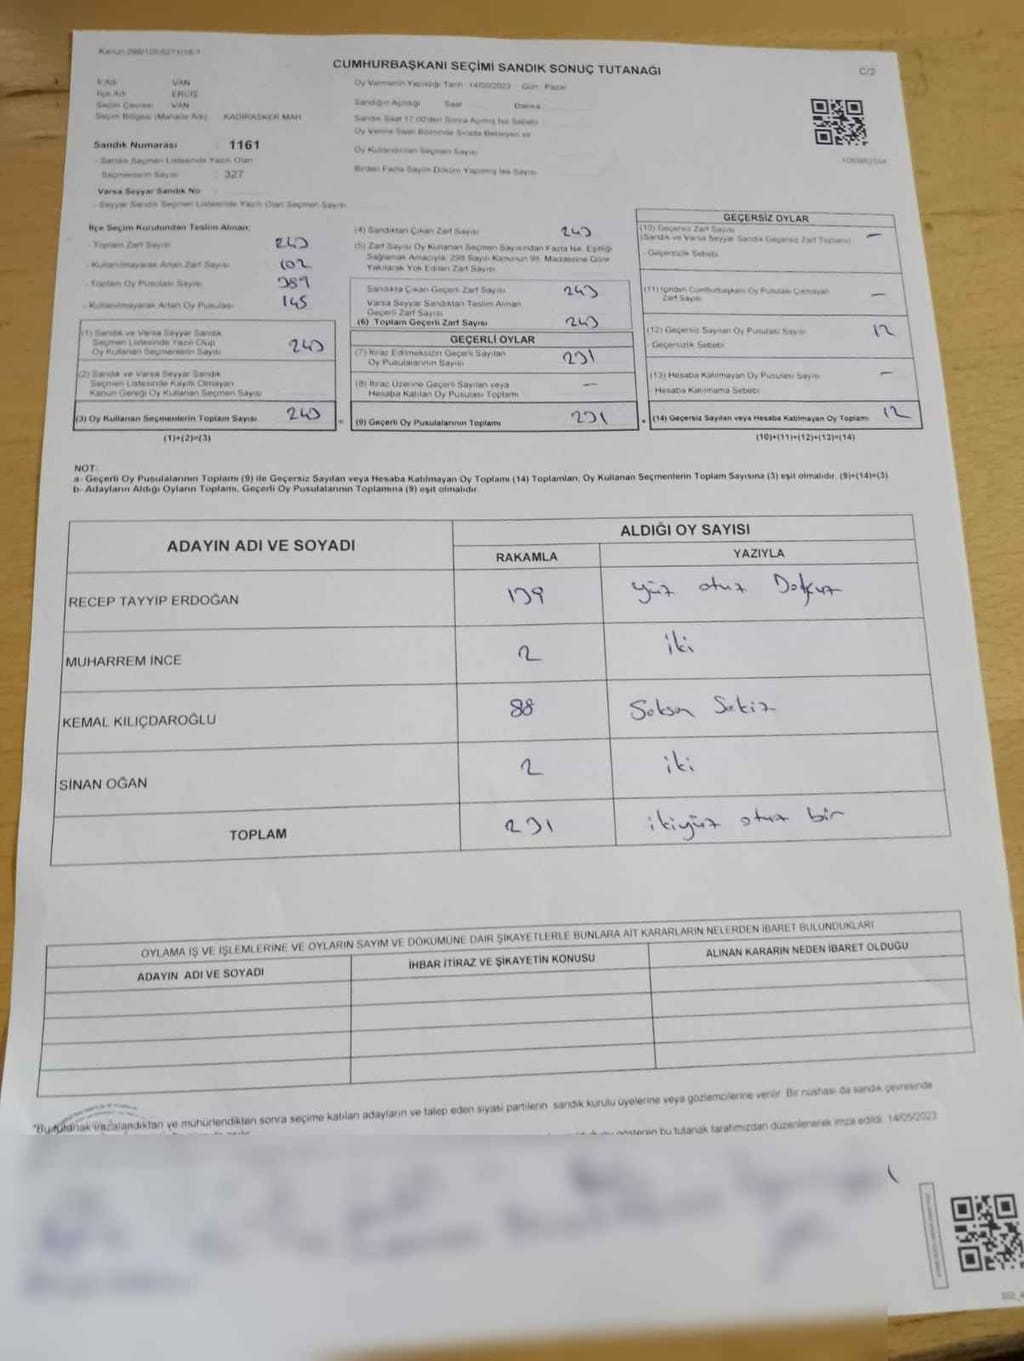 Kanun 298/105-6271/16-1
CUMHURBAŞKANI SEÇİMİ SANDIK SONUÇ TUTANAĞI
C/2
İl Adı VAN
İlçe Adı ERCİŞ
Seçim Çevresi VAN
Seçim Bölgesi (Mahalle Adı) KADİRASKER MAH.
Sandık Numarası 1161
- Sandık Seçmen Listesinde Yazılı Olan
Seçmenlerin Sayısı 327
Varsa Seyyar Sandık No
- Seyyar Sandık Seçmen Listesinde Yazılı Olan Seçmen Sayısı
Oy Vermenin Yapıldığı Tarih 14/05/2023 Gün Pazar
Sandığın Açıldığı Saat Dakika
Sandık Saat 17:00'den Sonra Açılmış İse Sebebi
Oy Verme Saati Bitiminde Sırada Bekleyen ve
Oy Kullandırılan Seçmen Sayısı
Birden Fazla Sayım Döküm Yapılmış İse Sayısı
İlçe Seçim Kurulundan Teslim Alınan;
- Toplam Zarf Sayısı 243
- Kullanılmayarak Artan Zarf Sayısı 102
- Toplam Oy Pusulası Sayısı 389
- Kullanılmayarak Artan Oy Pusulası 145
(1) Sandık ve Varsa Seyyar Sandık
Seçmen Listesinde Yazılı Olup
Oy Kullanan Seçmenlerin Sayısı 243
(2) Sandık ve Varsa Seyyar Sandık
Seçmen Listesinde Kayıtlı Olmayan
Kanun Gereği Oy Kullanan Seçmen Sayısı
(3) Oy Kullanan Seçmenlerin Toplam Sayısı 243
(1)+(2)=(3)
(4) Sandıktan Çıkan Zarf Sayısı 243
(5) Zarf Sayısı Oy Kullanan Seçmen Sayısından Fazla İse, Eşitliği
Sağlamak Amacıyla, 298 Sayılı Kanunun 98. Maddesine Göre
Yakılarak Yok Edilen Zarf Sayısı
Sandıkta Çıkan Geçerli Zarf Sayısı 243
Varsa Seyyar Sandıktan Teslim Alınan
Geçerli Zarf Sayısı
(6) Toplam Geçerli Zarf Sayısı 243
GEÇERLİ OYLAR
(7) İtiraz Edilmeksizin Geçerli Sayılan
Oy Pusulalarının Sayısı 231
(8) İtiraz Üzerine Geçerli Sayılan veya
Hesaba Katılan Oy Pusulası Toplamı —
(9) Geçerli Oy Pusulalarının Toplamı 231
GEÇERSİZ OYLAR
(10) Geçersiz Zarf Sayısı
(Sandık ve Varsa Seyyar Sandık Geçersiz Zarf Toplamı) —
- Geçersizlik Sebebi
(11) İçinden Cumhurbaşkanı Oy Pusulası Çıkmayan
Zarf Sayısı —
(12) Geçersiz Sayılan Oy Pusulası Sayısı 12
Geçersizlik Sebebi
(13) Hesaba Katılmayan Oy Pusulası Sayısı —
Hesaba Katılmama Sebebi
(14) Geçersiz Sayılan veya Hesaba Katılmayan Oy Toplamı 12
(10)+(11)+(12)+(13)=(14)
NOT:
a- Geçerli Oy Pusulalarının Toplamı (9) ile Geçersiz Sayılan veya Hesaba Katılmayan Oy Toplamı (14) Toplamları, Oy Kullanan Seçmenlerin Toplam Sayısına (3) eşit olmalıdır. (9)+(14)=(3)
b- Adayların Aldığı Oyların Toplamı, Geçerli Oy Pusulalarının Toplamına (9) eşit olmalıdır.
ADAYIN ADI VE SOYADI
ALDIĞI OY SAYISI
RAKAMLA YAZIYLA
RECEP TAYYİP ERDOĞAN 139 yüz otuz Dokuz
MUHARREM İNCE 2 iki
KEMAL KILIÇDAROĞLU 88 Seksen Sekiz
SİNAN OĞAN 2 iki
TOPLAM 231 ikiyüz otuz bir
OYLAMA İŞ VE İŞLEMLERİNE VE OYLARIN SAYIM VE DÖKÜMÜNE DAİR ŞİKAYETLERLE BUNLARA AİT KARARLARIN NELERDEN İBARET BULUNDUKLARI
ADAYIN ADI VE SOYADI
İHBAR İTİRAZ VE ŞİKAYETİN KONUSU
ALINAN KARARIN NEDEN İBARET OLDUĞU
"Bu tutanak imzalandıktan ve mühürlendikten sonra seçime katılan adayların ve talep eden siyasi partilerin sandık kurulu üyelerine veya gözlemcilerine verilir. Bir nüshası da sandık çevresinde
gösteren bu tutanak tarafımızdan düzenlenerek imza edildi. 14/05/2023